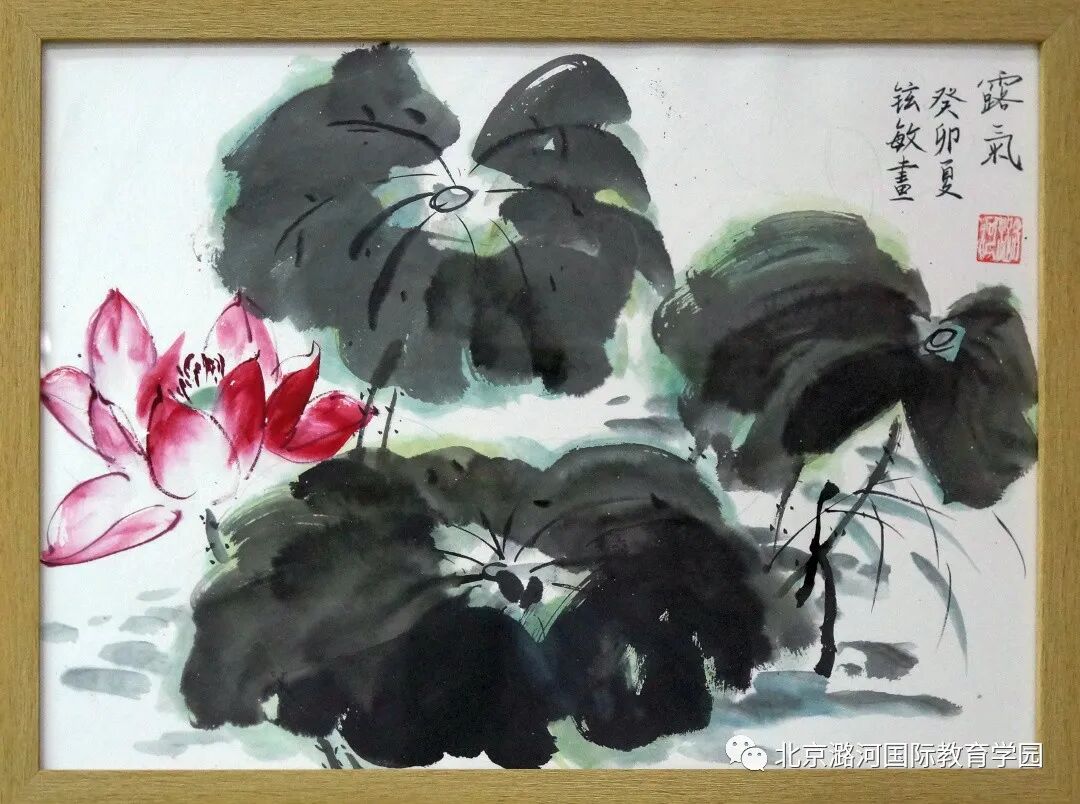 露氣
癸卯夏
鉉敏畫
北京潞河国际教育学园